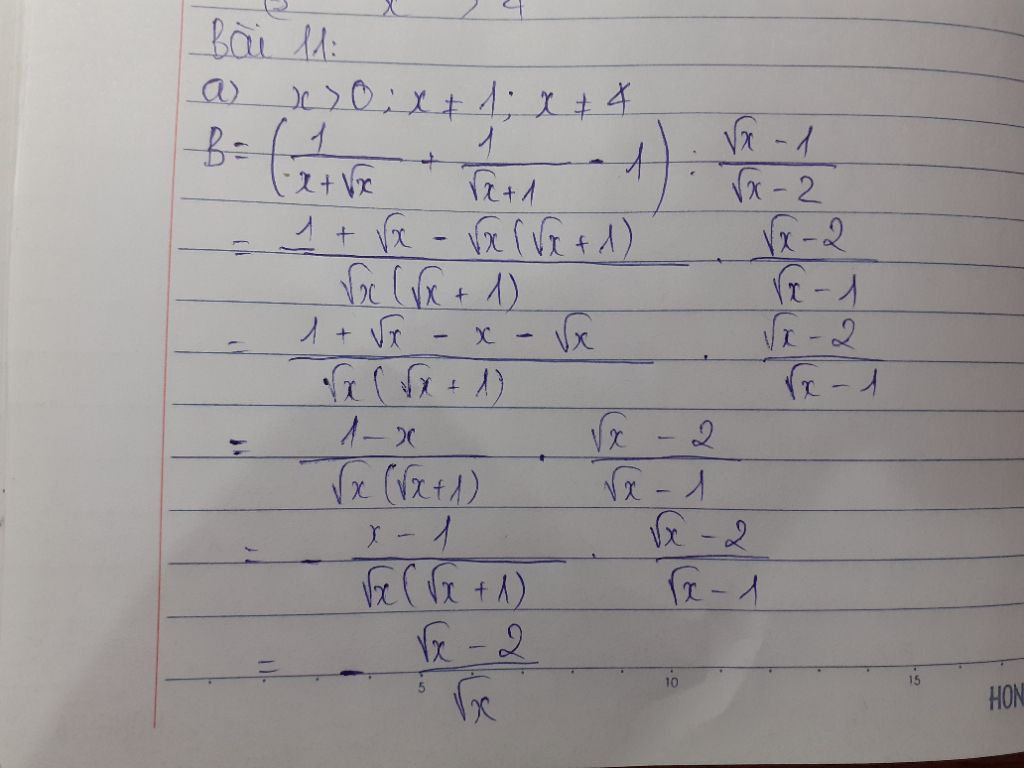 Bài 11:
a) x > 0 ; x ≠ 1 ; x ≠ 4
B = ( 1/(x + √x) + 1/(√x + 1) - 1 ) : (√x - 1)/(√x - 2)
= (1 + √x - √x(√x + 1))/(√x(√x + 1)) . (√x - 2)/(√x - 1)
= (1 + √x - x - √x)/(√x(√x + 1)) . (√x - 2)/(√x - 1)
= (1 - x)/(√x(√x + 1)) . (√x - 2)/(√x - 1)
= - (x - 1)/(√x(√x + 1)) . (√x - 2)/(√x - 1)
= - (√x - 2)/√x
5 10 15
HON